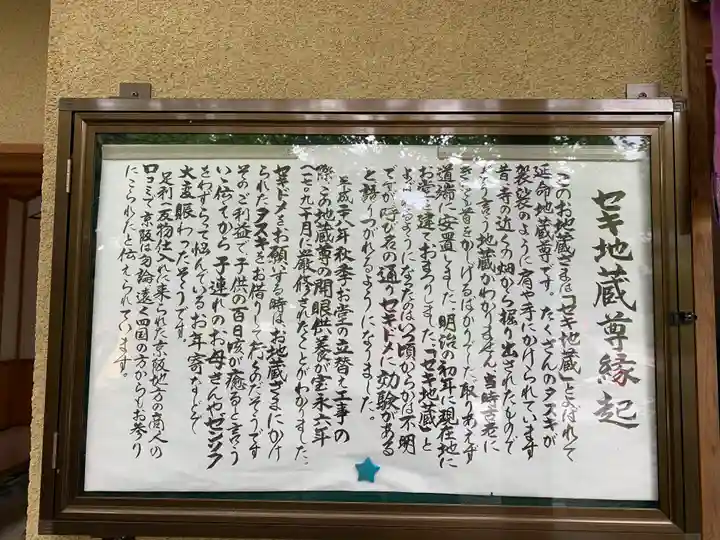 セキ地蔵尊縁起
このお地蔵さまは「セキ地蔵」とよばれて
延命地蔵尊です。たくさんのタスキが
袈裟のように肩や手にかけられています
昔寺の近くの畑から掘り出されたもので
言う地蔵かわかりません。当時古老に
きいても首をかしげるばかりでした。取りあえず
道端に安置しました。明治の初年に現在地に
お堂を建ておまつりしました。「セキ地蔵」と
よばれるようになったのはいつ頃からかは不明
ですが呼び名の通りセキドメに効験がある
と語りつがれるようになりました。
平成十八年秋季お堂の立替え工事の
際この地蔵尊の開眼供養が宝永六年
(一七〇九)十月に厳修されたことがわかりました。
セキドメをお願いする時はお地蔵さまにかけ
られたタスキをお借りして行くのだそうです
そのご利益で子供の百日咳が癒ると言う
い伝えから子連れのお母さんやゼンソク
をわずらって悩んでいるお年寄などで
大変賑わったそうです。
足利反物仕入れに来られた京阪地方の商人の
口コミで京阪は勿論遠く四国の方からもお参り
にこられたと伝えられています。